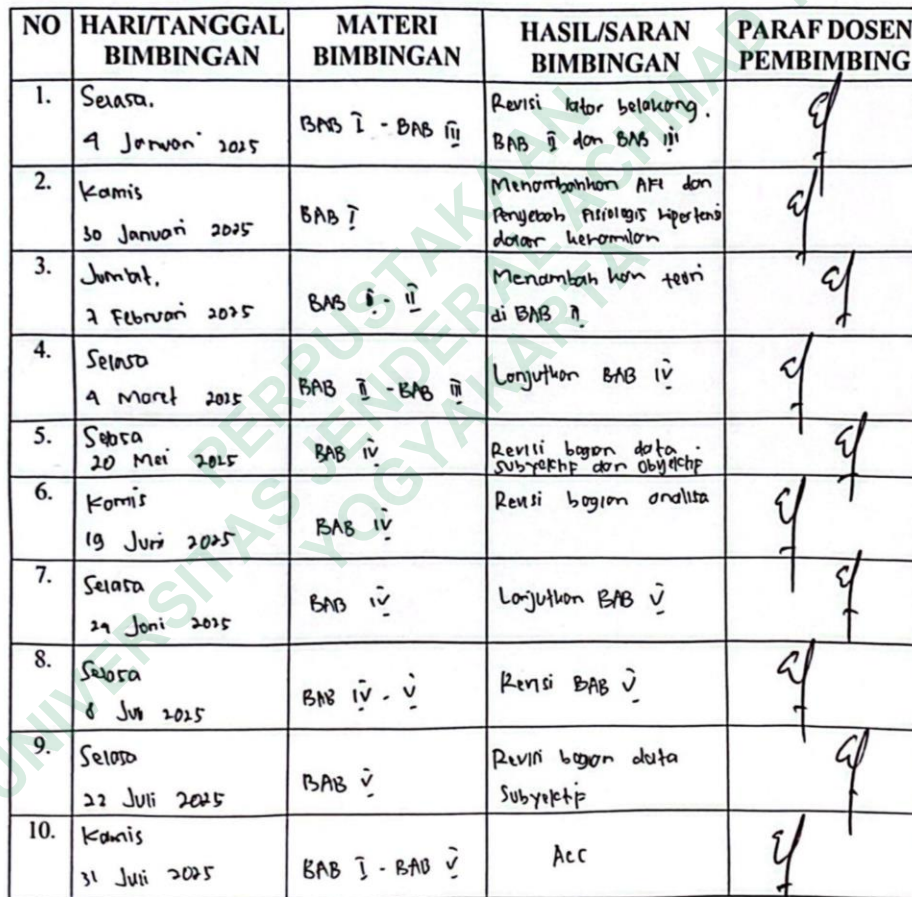 NO HARI/TANGGAL BIMBINGAN MATERI BIMBINGAN HASIL/SARAN BIMBINGAN PARAF DOSEN PEMBIMBING
1. Selasa,
4 Januari 2025 BAB I - BAB III Revisi latar belakang,
BAB II dan BAB III
2. Kamis
30 Januari 2025 BAB I Menambahkan AKI dan
Penyebab Fisiologis hipertensi
dalam kehamilan
3. Jumat,
7 Februari 2025 BAB I - II Menambah kan teori
di BAB II
4. Selasa
4 Maret 2025 BAB II - BAB III Lanjutkan BAB IV
5. Selasa
20 Mei 2025 BAB IV Revisi bagian data
subyektif dan Obyektif
6. Kamis
19 Juni 2025 BAB IV Revisi bagian analisa
7. Selasa
24 Juni 2025 BAB IV Lanjutkan BAB V
8. Selasa
8 Juli 2025 BAB IV - V Revisi BAB V
9. Selasa
22 Juli 2025 BAB V Revisi bagian data
Subyektif
10. Kamis
31 Juli 2025 BAB I - BAB V Acc
PERPUSTAKAAN
UNIVERSITAS JENDERAL ACHMAD
YOGYAKARTA